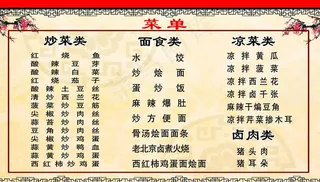 菜单
炒菜类
红烧鱼
酸辣豆芽
酸辣白菜
红烧茄子
酸辣土豆丝
清炒西兰花
菠菜炒豆筋
尖椒炒肉丝
蒜苔炒肉丝
豆角炒肉丝
尖椒炒鸡蛋
黄瓜炒鸡蛋
西红柿炒鸡蛋
面食类
水饺
炒烩面
蛋炒饭
麻辣爆肚
炒方便面
骨汤烩面面条
老北京卤煮火烧
西红柿鸡蛋面烩面
凉菜类
凉拌黄瓜
凉拌菠菜
凉拌西兰花
凉拌卤千张
麻辣干煸豆角
凉拌芹菜掺木耳
卤肉类
猪头肉
猪耳朵